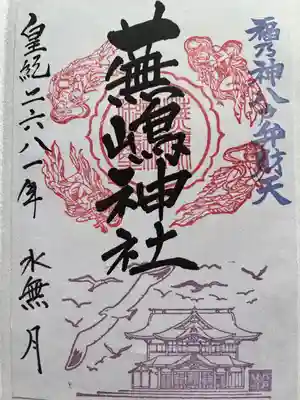 福乃神八臂弁財天
蕪嶋神社
皇紀二六八一年
水無月